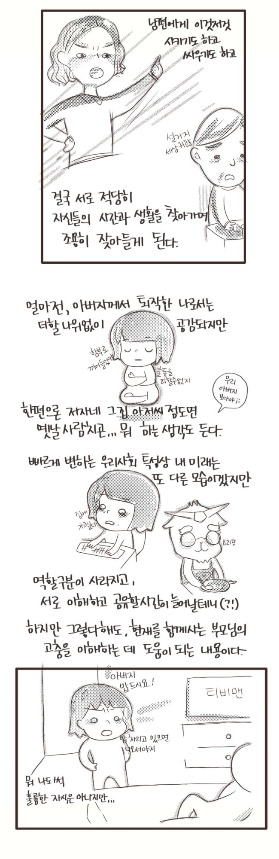 남편에게 이것저것
시키기도 하고
싸우기도 하고
설거지
세상처음
결국 서로 적당히
자신들의 시간과 생활을 찾아가며
조용히 잦아들게 된다.
얼마전, 아버지께서 퇴직한 나로서는
더할 나위없이 공감되지만
우리
아버지
한편으론 저자네 그집 아저씨 정도면
옛날 사람치곤... 뭐 하는 생각도 든다.
빠르게 변하는 우리사회 특성상 내 미래는
또 다른 모습이겠지만
역할구분이 사라지고,
서로 이해하고 공유할시간이 늘어날테니(?!)
하지만 그렇다해도, 현재를 함께사는 부모님의
고충을 이해하는 데 도움이 되는 내용이다.
아버지
티비맨
뭐 나도 썩
훌륭한 자식은 아니지만...